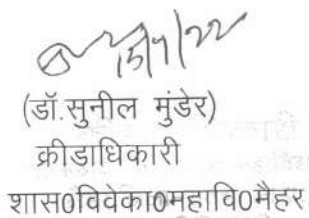 15/9/22
(डॉ.सुनील मुंडेर)
क्रीडाधिकारी
शास0विवेका0महावि0मैहर